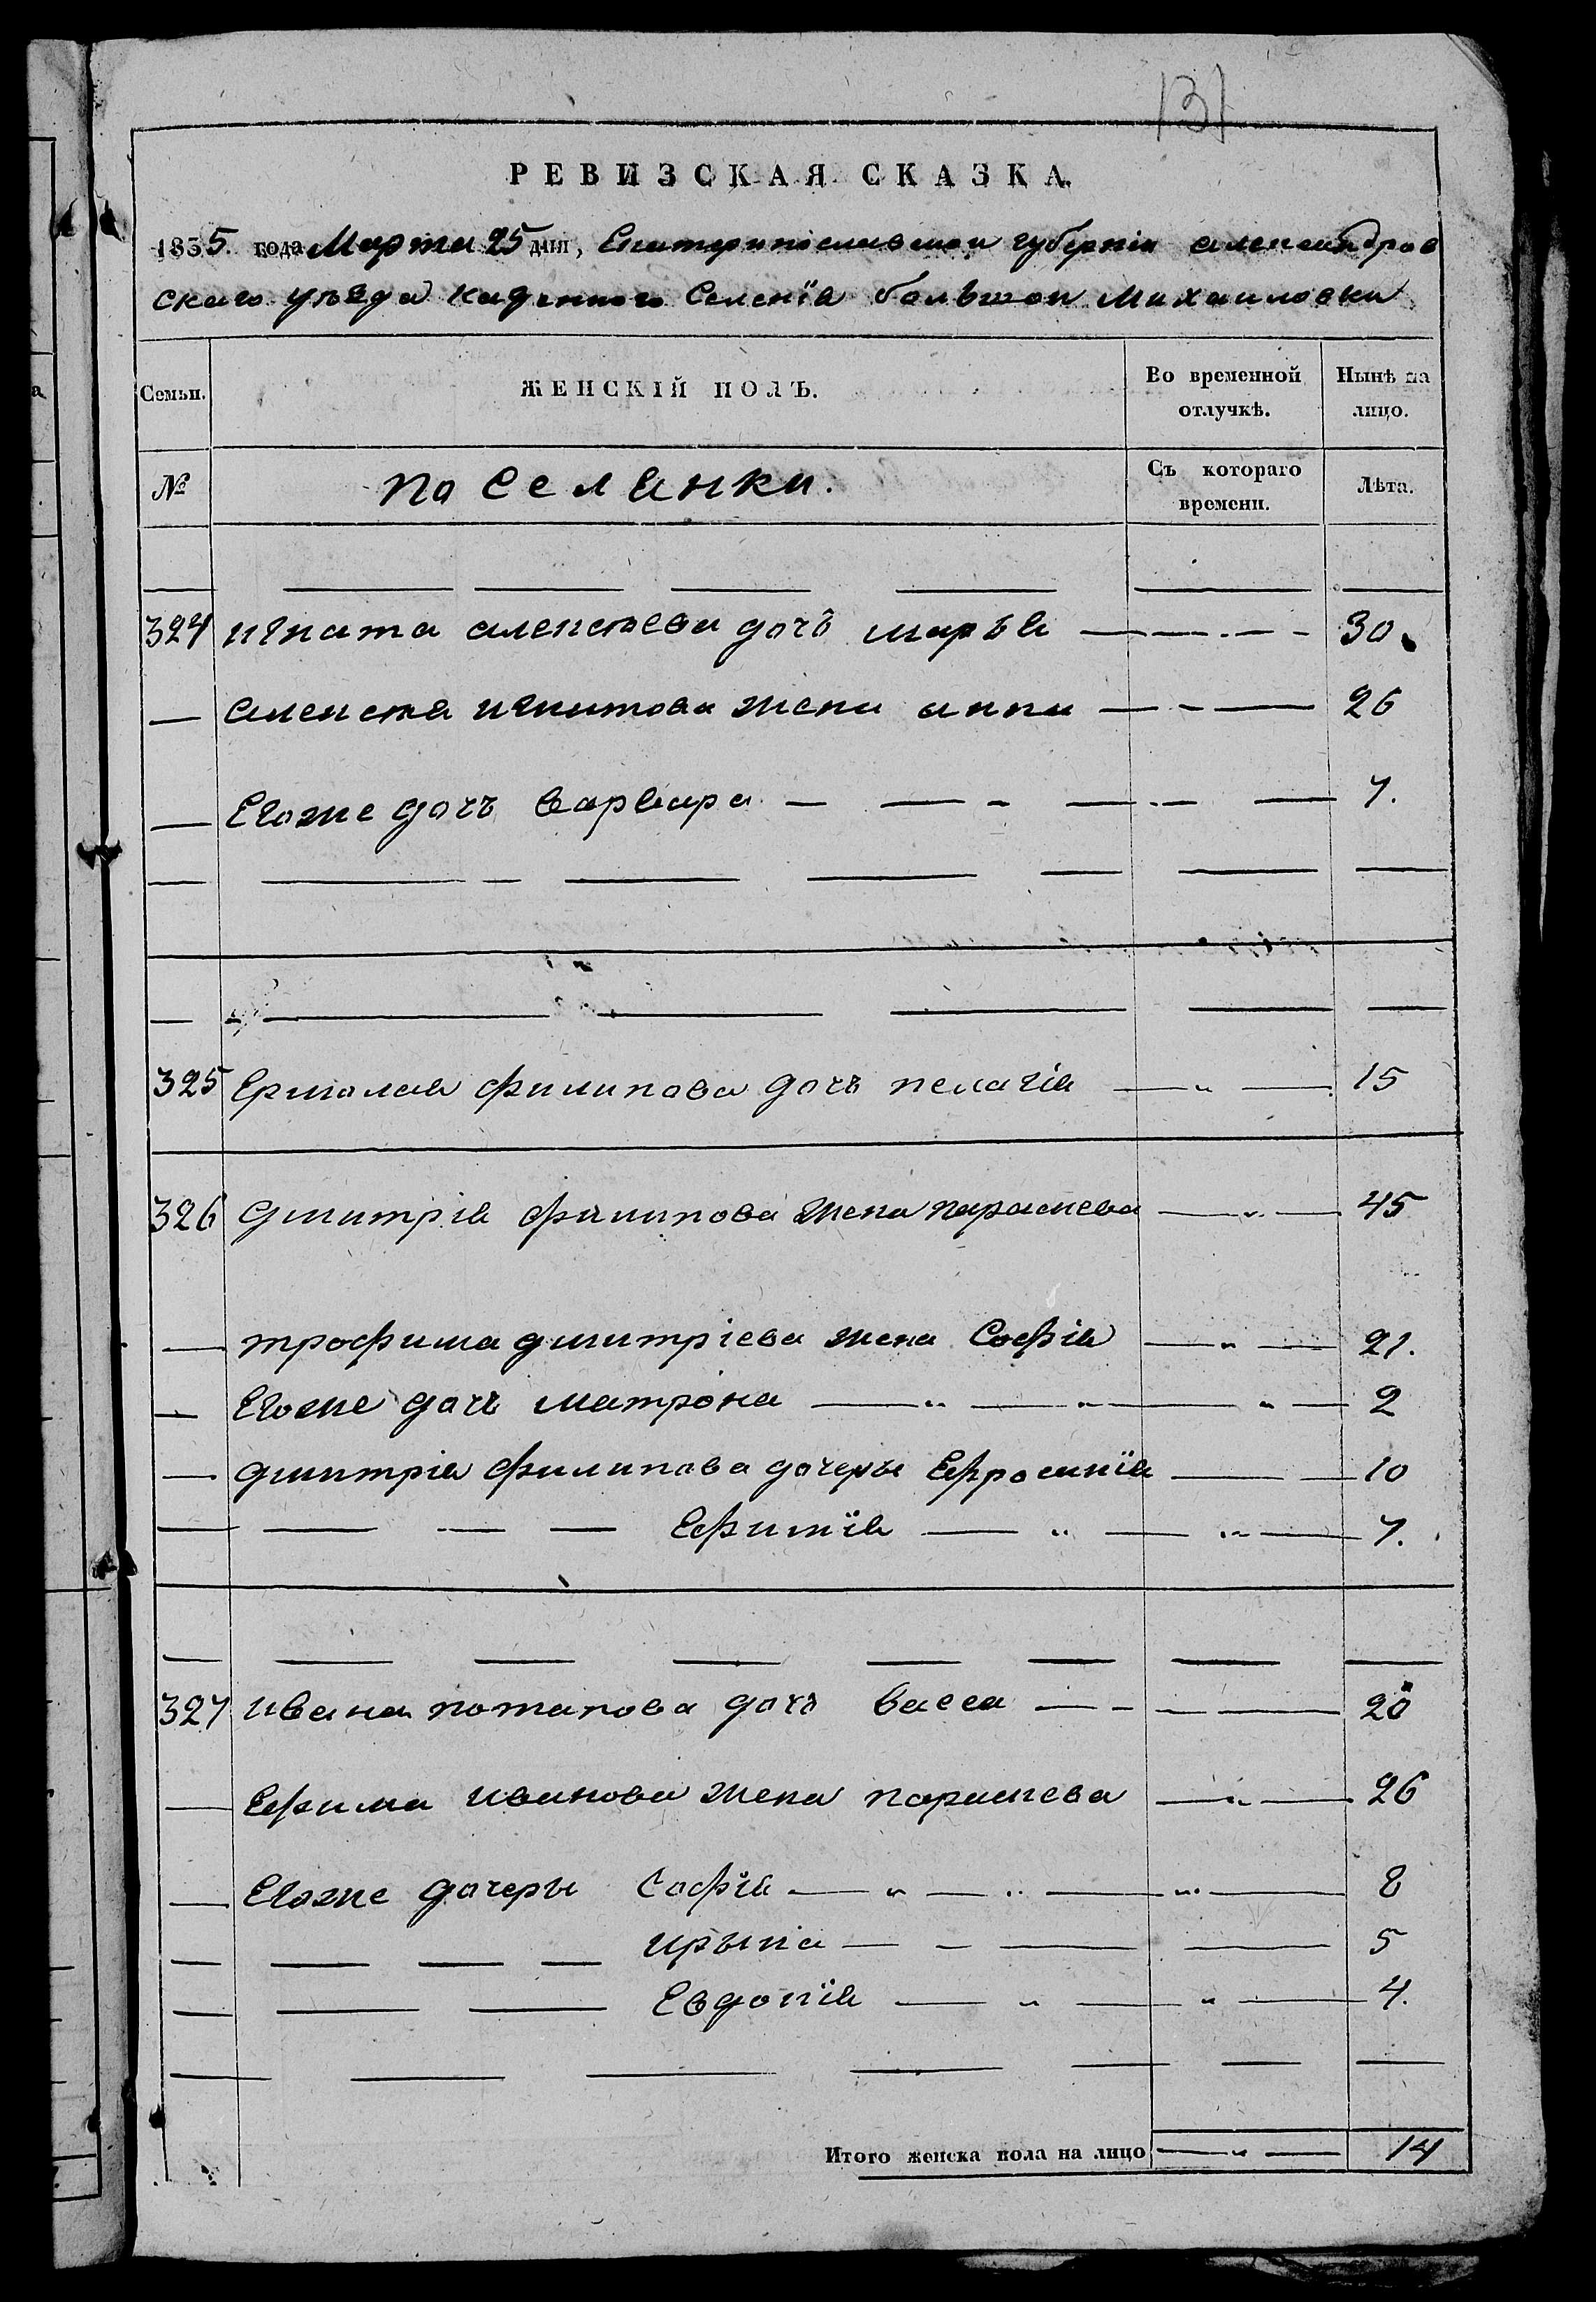 131
РЕВИЗСКАЯ СКАЗКА.
1835 года Марта 25 дня, Екатеринославской губерніи александров
скаго уѣзда казенного Селенїя большой михайловки
Семьи. ЖЕНСКІЙ ПОЛЪ. Во временной отлучкѣ. Нынѣ на лицо.
№ поселянки. Съ котораго времени. Лѣта.
324 игната алексѣева дочь марья 30.
алексѣя игнатова жена анна 26
Егоже дочъ варвара 7.
325 Ермолая филипова дочъ пелагія 15
326 дмитрія филипова жена параскева 45
трофима дмитріева жена Софія 21.
Егоже дочъ матрона 2
дмитрія филипова дочеры Ефросинїя 10
Ефимїя 7.
327 ивана потапова дочъ васса 20
Ефима иванова жена параскева 26
Егоже дочеры Софїя 8
ирына 5
Евдокїя 4.
Итого женска пола на лицо 14